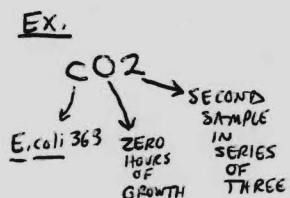 Ex.
C02
E.coli 363
ZERO
HOURS
OF
GROWTH
SECOND
SAMPLE
IN
SERIES
OF
THREE